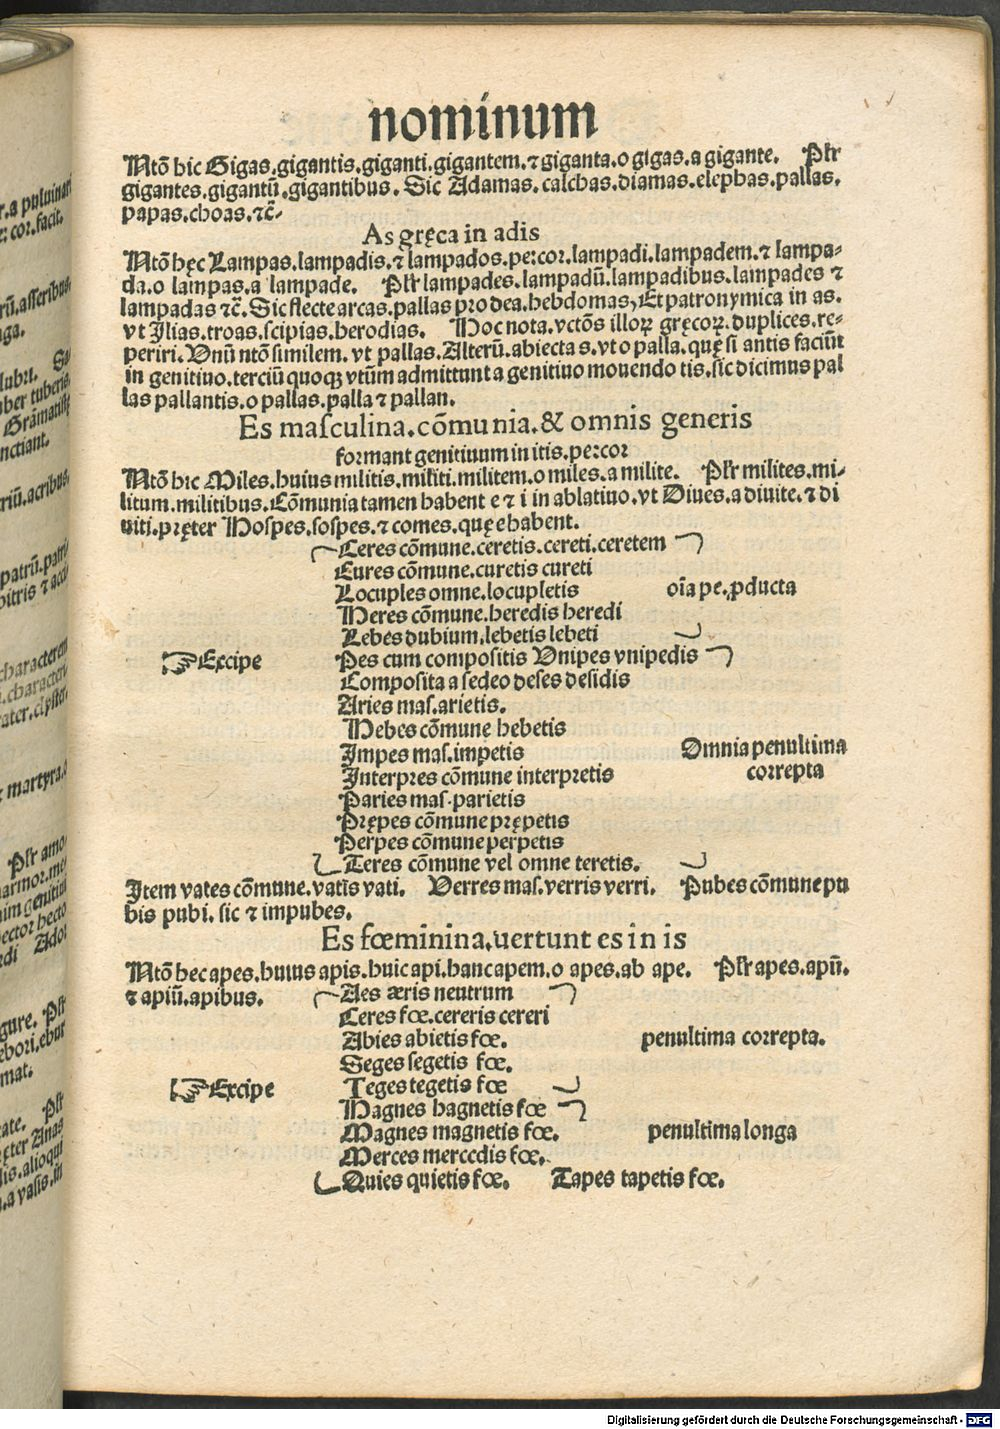 nominum
Ntõ hic Gigas.gigantis.giganti.gigantem.⁊ giganta.o gigas.a gigante. Plr
gigantes.gigantũ.gigantibus. Sic Adamas.calchas.diamas.elephas.pallas.
papas.choas.⁊c̃.
As gręca in adis
Ntõ hęc Lampas.lampadis.⁊ lampados.pe:cor.lampadi.lampadem.⁊ lampa-
da.o lampas.a lampade. Plr lampades.lampadũ.lampadibus.lampades ⁊
lampadas ⁊c̃. Sic flecte arcas.pallas pro dea.hebdomas, Et patronymica in as.
vt Ilias.troas.scipias.herodias. Hoc nota.vctõs illoꝝ gręcoꝝ.duplices.re-
periri. Vnũ ntõ similem. vt pallas. Alterũ.abiecta s.vt o palla.quę si antis faciũt
in genitiuo.terciũ quoqꝫ vtũm admittunt a genitiuo mouendo tis.sic dicimus pal
las pallantis.o pallas.palla ⁊ pallan.
Es masculina.cõmunia.& omnis generis
formant genitiuum in itis.pe:cor
Ntõ hic Miles.huius militis.militi.militem.o miles.a milite. Plr milites.mi-
litum.militibus. Cõmunia tamen habent e ⁊ i in ablatiuo.vt Diues.a diuite.⁊ di
uiti.pręter Hospes.sospes.⁊ comes.quę e habent.
Ceres cõmune.ceretis.cereti.ceretem
Cures cõmune.curetis cureti
Locuples omne.locupletis oĩa pe.ꝓducta
Heres cõmune.heredis heredi
Lebes dubium.lebetis lebeti
☞ Excipe Pes cum compositis Vnipes vnipedis
Composita a sedeo deses desidis
Aries mas.arietis.
Hebes cõmune hebetis
Impes mas.impetis Omnia penultima
Interpres cõmune interpretis correpta
Paries mas.parietis
Prępes cõmune prępetis
Perpes cõmune perpetis
Teres cõmune vel omne teretis.
Item vates cõmune.vatis vati. Verres mas.verris verri. Pubes cõmune pu
bis pubi. sic ⁊ impubes.
Es fœminina.uertunt es in is
Ntõ hec apes.huius apis.huic api.hanc apem.o apes.ab ape. Plr apes.apũ.
⁊ apiũ.apibus. Aes æris neutrum
Ceres fœ.cereris cereri
Abies abietis fœ. penultima correpta.
Seges segetis fœ.
☞ Excipe Teges tegetis fœ
Hagnes hagnetis fœ
Magnes magnetis fœ. penultima longa
Merces mercedis fœ.
Quies quietis fœ. Tapes tapetis fœ.
r.a puluinari
e: cor.facit.
rũ.asseribus
ber tuberis
Grãmatist
nctiant.
riũ.acribus.
patrũ.patri
characterem
martyra.o
Plr amo
armor.me
im genitiu
ector hecto
Ador
gure. Plr
ebori.ebur
mat.
ate. Plr
ęter Anas
lis.alioqui
a vasis.in
Digitalisierung gefördert durch die Deutsche Forschungsgemeinschaft - DFG